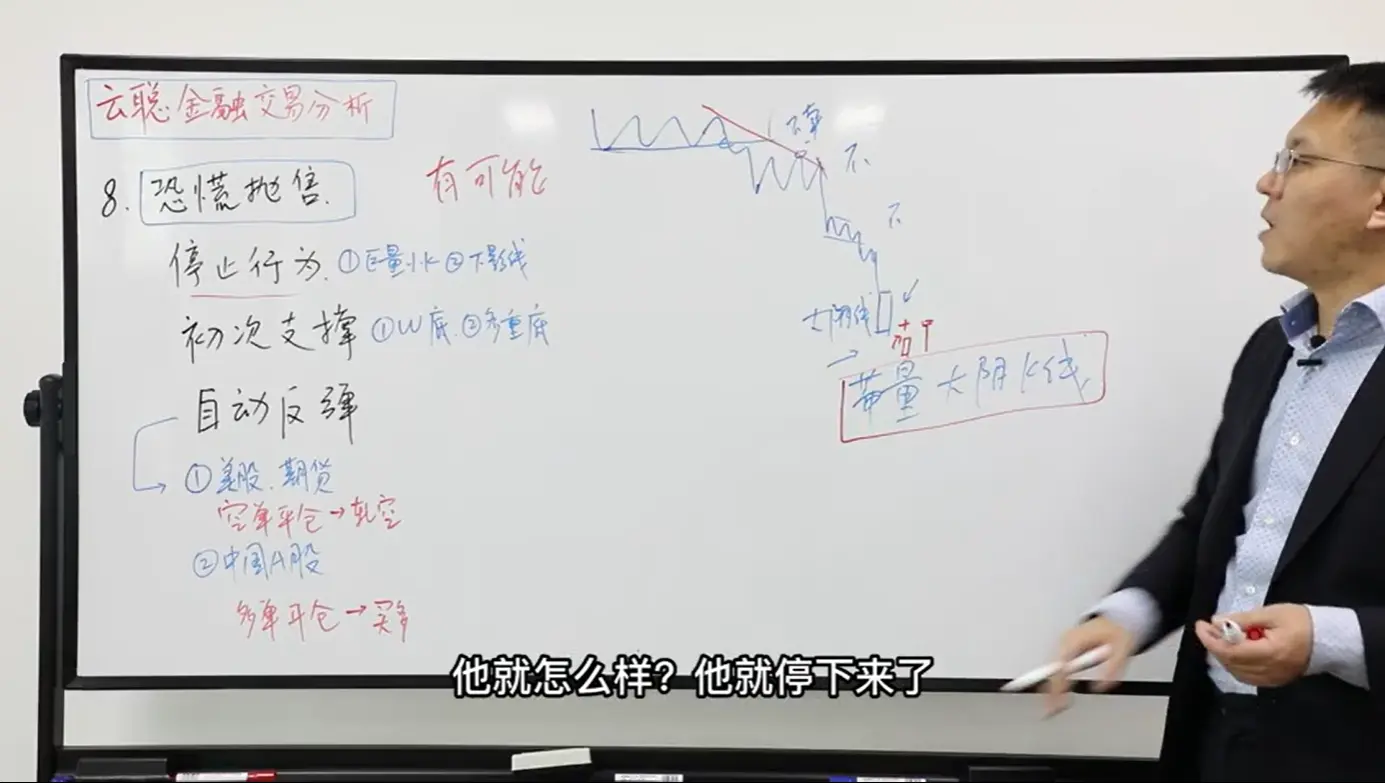 云聪金融交易分析
8. 恐慌抛售
有可能
停止行为 ①巨量小K ②下影线
初次支撑 ①W底 ②多重底
自动反弹
①美股、期货
空单平仓→轧空
②中国A股
多单平仓→买多
不
不
大阴线
带量大阴K线
他就怎么样？他就停下来了